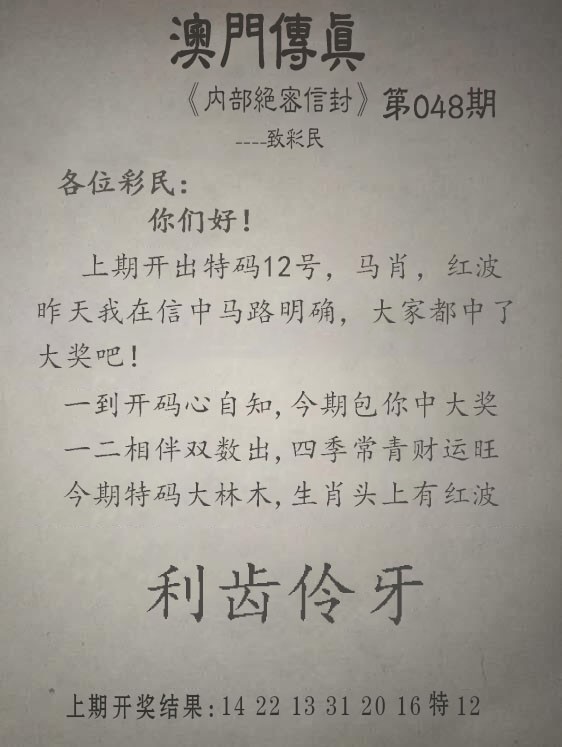 澳門傳眞
《内部絕密信封》第048期
----致彩民
各位彩民:
你们好!
上期开出特码12号，马肖，红波
昨天我在信中马路明确，大家都中了
大奖吧!
一到开码心自知,今期包你中大奖
一二相伴双数出,四季常青财运旺
今期特码大林木,生肖头上有红波
利齿伶牙
上期开奖结果:14 22 13 31 20 16 特 12